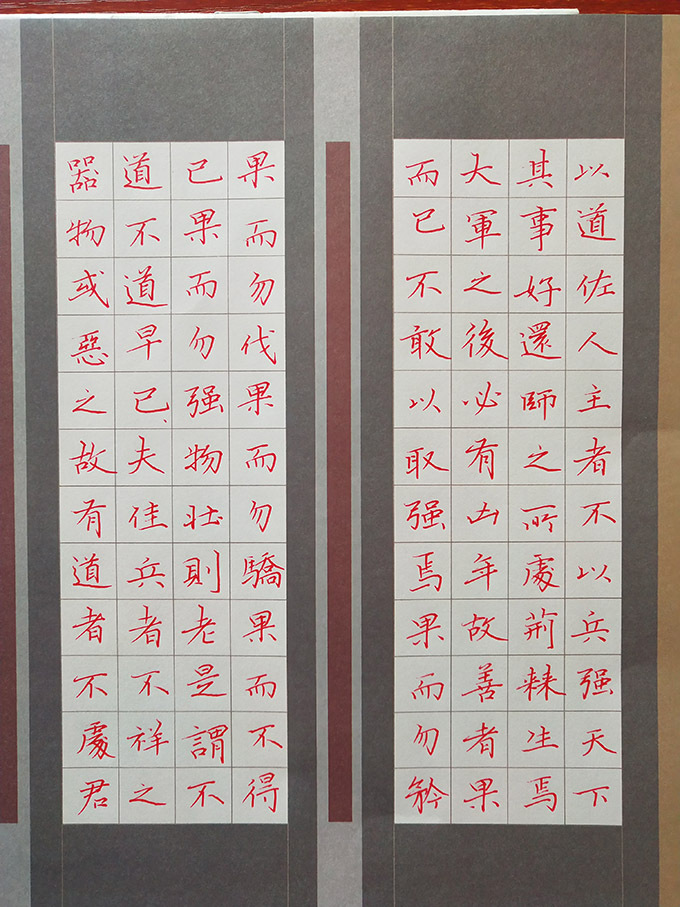 以道佐人主者不以兵强天下
其事好還師之所處荊棘生焉
大軍之後必有凶年故善者果
而已不敢以取强焉果而勿矜
果而勿伐果而勿驕果而不得
已果而勿强物壯則老是謂不
道不道早已、夫佳兵者不祥之
器物或惡之故有道者不處君